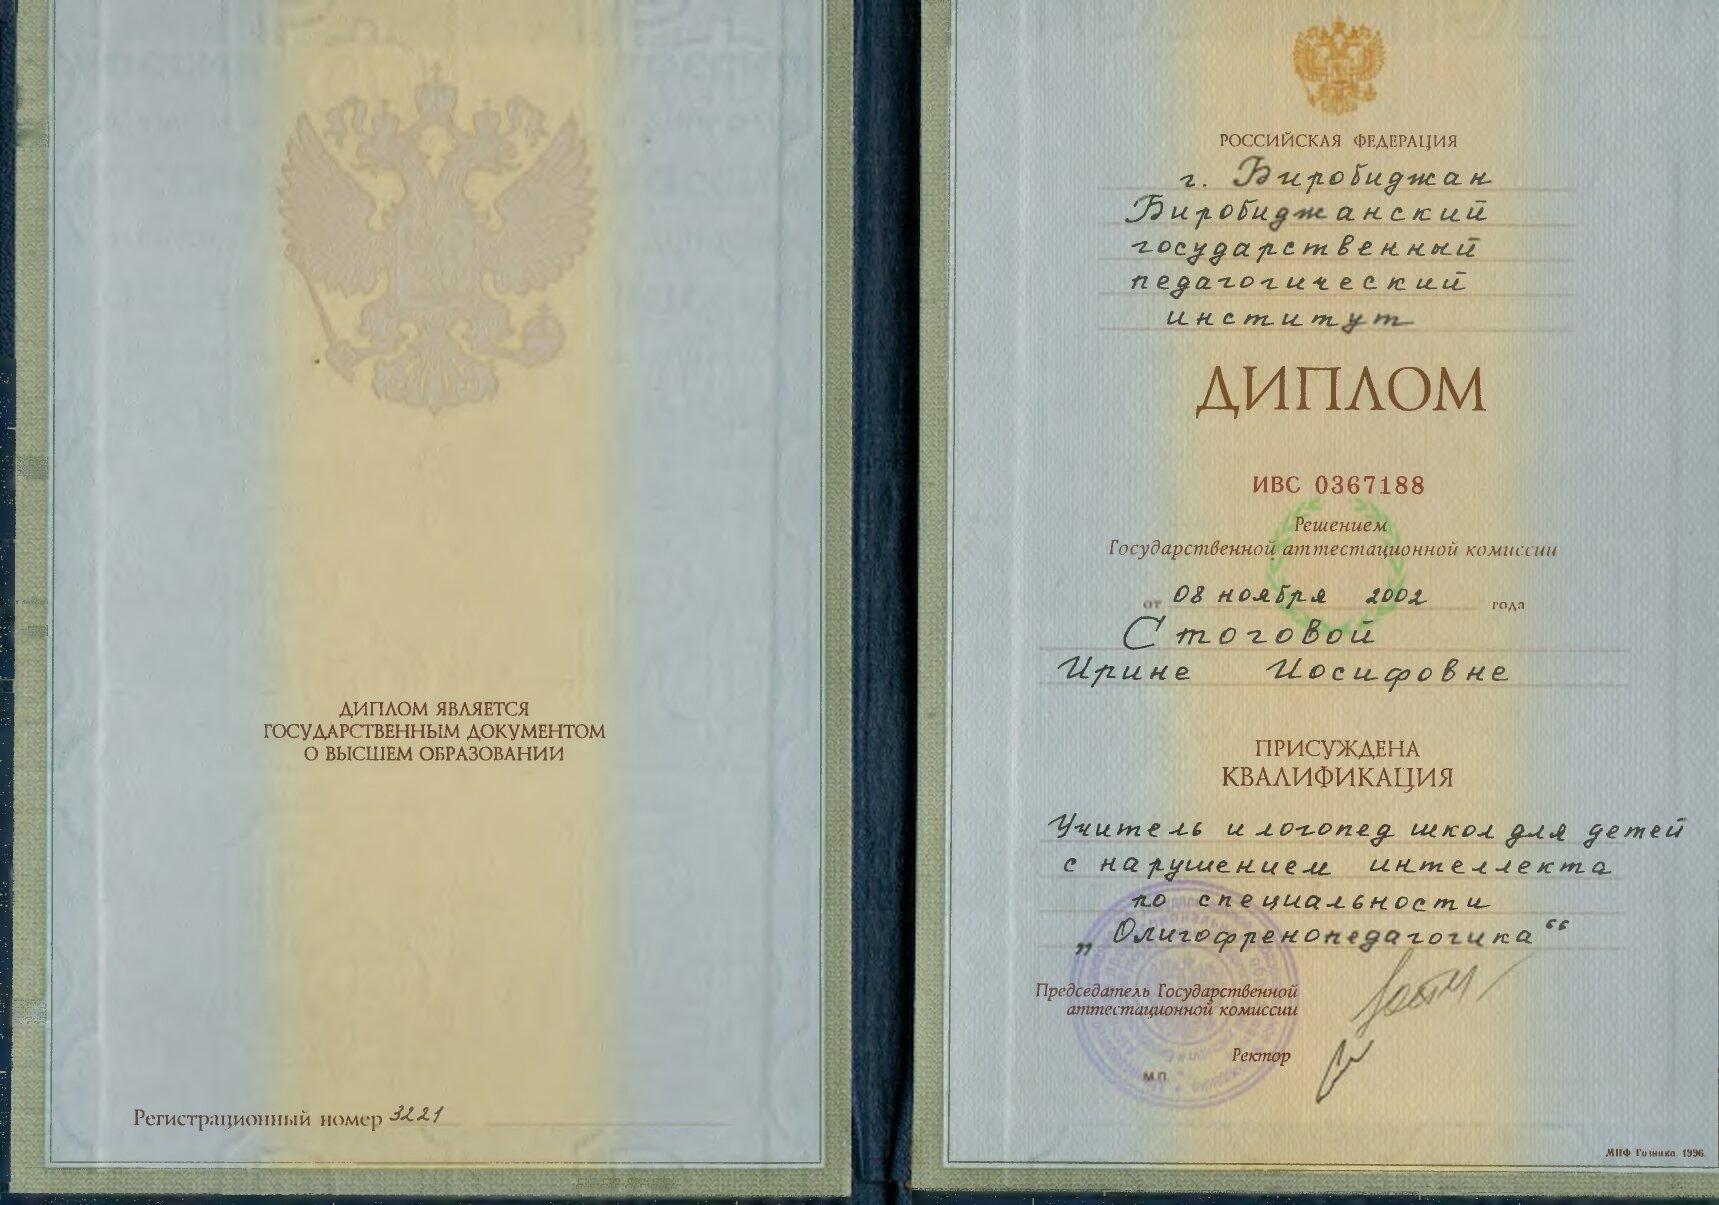 ДИПЛОМ ЯВЛЯЕТСЯ
ГОСУДАРСТВЕННЫМ ДОКУМЕНТОМ
О ВЫСШЕМ ОБРАЗОВАНИИ
Регистрационный номер 3221
РОССИЙСКАЯ ФЕДЕРАЦИЯ
г. Биробиджан
Биробиджанский
государственный
педагогический
институт
ДИПЛОМ
ИВС 0367188
Решением
Государственной аттестационной комиссии
от 08 ноября 2002 года
Стоговой
Ирине Иосифовне
ПРИСУЖДЕНА
КВАЛИФИКАЦИЯ
Учитель и логопед школ для детей
с нарушением интеллекта
по специальности
„Олигофренопедагогика“
Председатель Государственной
аттестационной комиссии
Ректор
М.П.
МПФ Гознака. 1996.